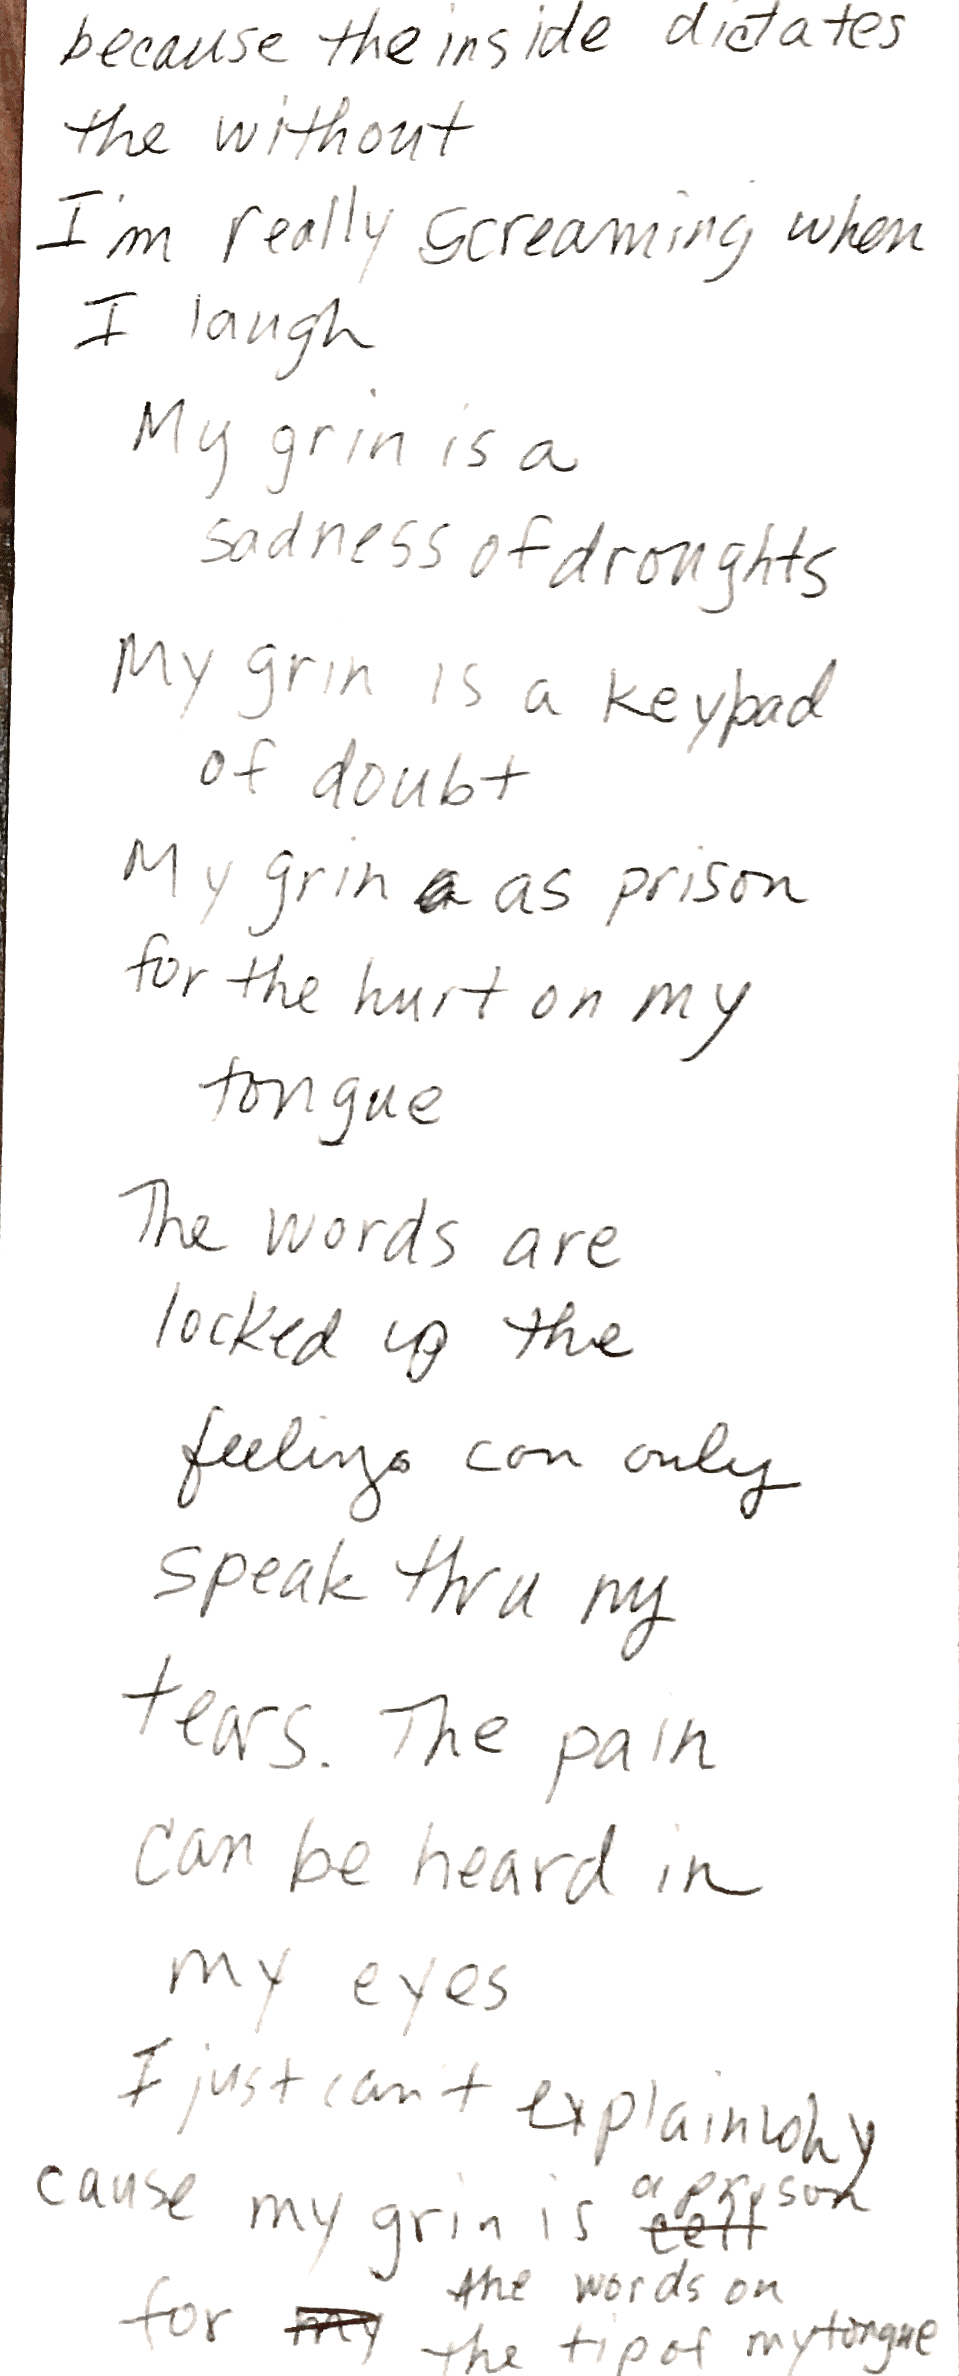 because the inside dictates
the without
I'm really screaming when
I laugh
My grin is a
sadness of droughts
My grin is a keypad
of doubt
My grin a as prison
for the hurt on my
tongue
The words are
locked up the
feelings can only
speak thru my
tears. The pain
can be heard in
my eyes
I just can't explain why
cause my grin is cell a prison
for my the words on
the tip of my tongue